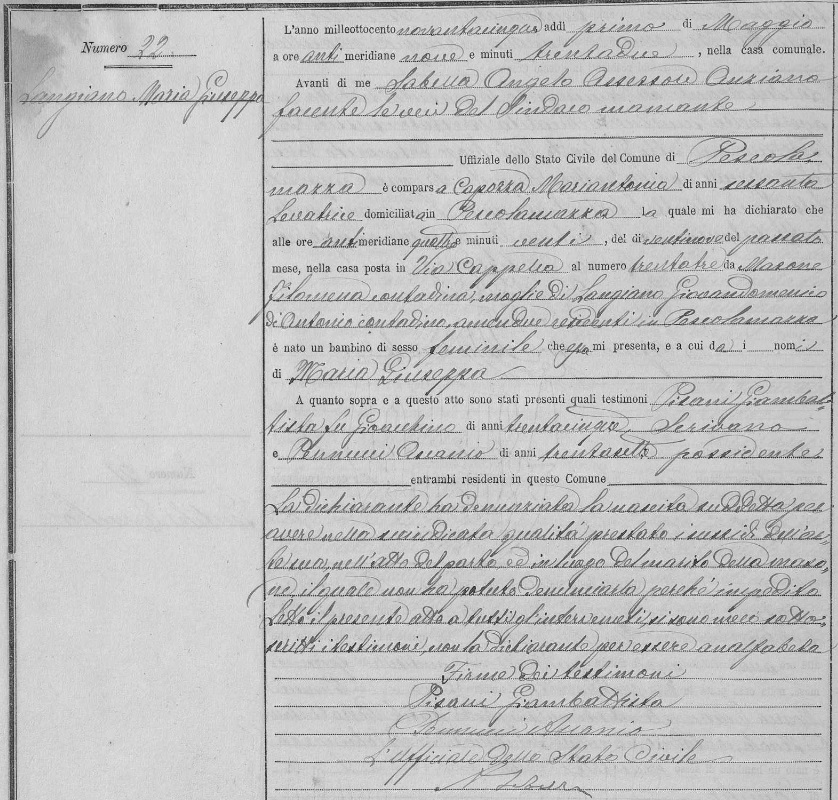 Numero 22
Langiano Maria Giuseppa
L'anno milleottocento novantacinque addì primo di Maggio
a ore anti meridiane nove e minuti trentadue, nella casa comunale.
Avanti di me Sabella Angelo Assessore Anziano
facente le veci del Sindaco mancante
Uffiziale dello Stato Civile del Comune di Pescola-
mazza è comparsa Capozza Mariantonia di anni sessanta
Levatrice domiciliata in Pescolamazza la quale mi ha dichiarato che
alle ore anti meridiane quattro e minuti venti, del dì ventinove del passato
mese, nella casa posta in Via Cappella al numero trentatre da Masone
Filomena contadina, moglie di Langiano Giovandomenico
di Antonio contadino, amendue residenti in Pescolamazza
è nato un bambino di sesso feminile che essa mi presenta, e a cui dà i nomi
di Maria Giuseppa
A quanto sopra e a questo atto sono stati presenti quali testimoni Pisani Giambat-
tista fu Gioacchino di anni trentacinque, Scrivano
e Pennucci Ananio di anni trentasette possidente
entrambi residenti in questo Comune
La dichiarante ha denunziata la nascita suddetta per
avere nella suindicata qualità prestato i sussidi dell'ar-
te sua, nell'atto del parto ed in luogo del marito della Maso-
ne, il quale non ha potuto denunciarla perché impedito
Letto il presente atto a tutti gl'intervenuti, si sono meco sotto-
scritti i testimoni, non la dichiarante per essere analfabeta
Firme dei testimoni
Pisani Giambattista
Pennucci Ananio
L'Uffiziale dello Stato Civile
A Sabella